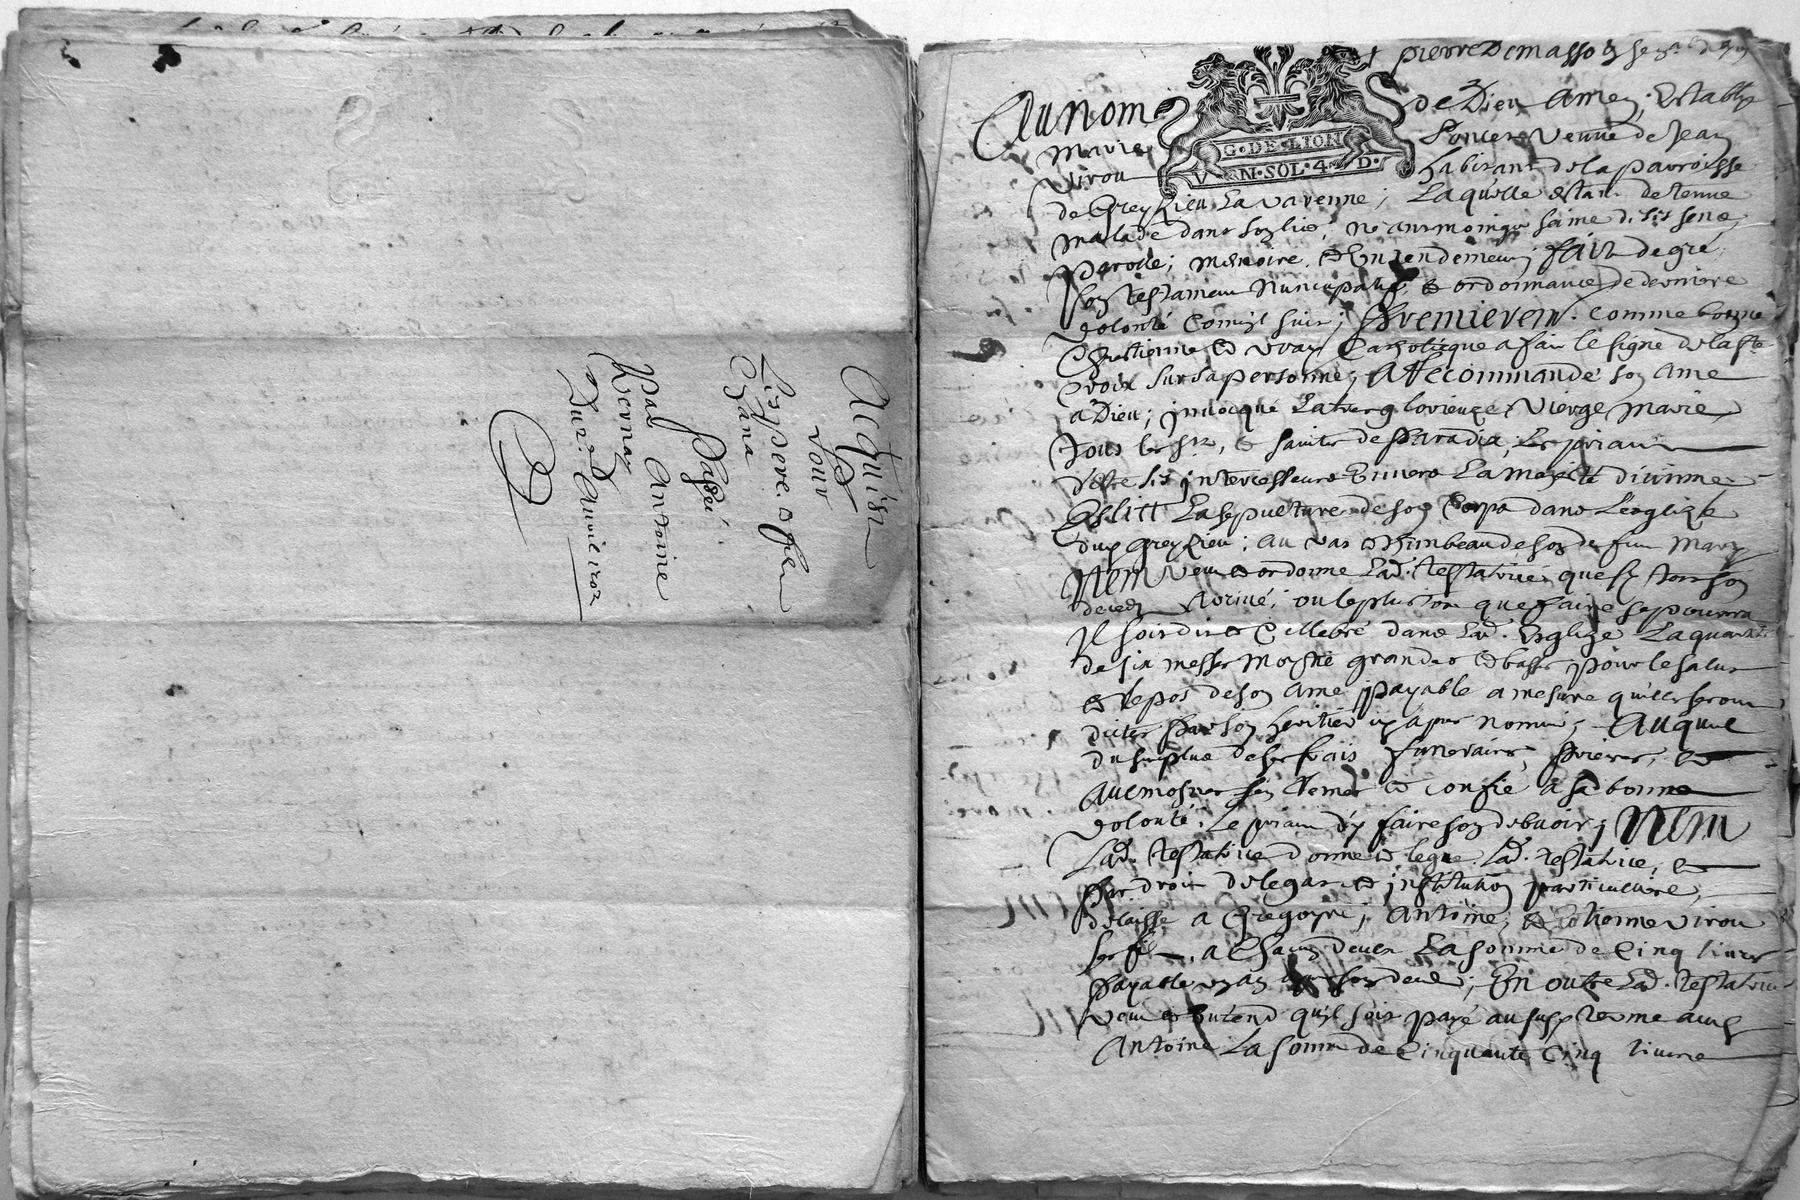 Acquisn
pour
Les pere & fils
Chana
Passé
Par Antoine
Vernay
Du 2e Avril 1702
pierre Demasso
Au nom de Dieu Amen; Establye
Marie veuve de Jean
Virou habitant de la parroisse
G·DE·LION
VN·SOL·4·D·
de Grey Lieu La varenne; Laquelle estant detenue
malade dans son lict, neantmoings saine de ses sens,
parolle; memoire, & Entendement; faict de gré
son testament Nuncupatif, & ordonnance de derniere
volonté Comil suit; Premierem. Comme bonne
Chrestienne & vraye Catholique a fait le signe de la Ste
Croix sur sa personne; A Recommandé son Ame
a Dieu; invocqué La tres glorieuze Vierge Marie,
Tous les Sts, & saintes de Paradis, Les priant
d'estre ses intercesseurs Envers La majesté divinne
Eslitt La sepulture de son Corps dans L'esglize
dud Grey Lieu; au vas & thombeau de son defunt Mary
Item veut & ordonne Lad. testatrice que sy tost son
decedz Arrivé; ou le plustost que faire se pourra
Il soit dit & Cellebré dans Lad. Esglize La quantité
de six messes moytié grandes & basses pour le salut
& Repos de son Ame payable a mesure qu'elles seront
dictes par son heritier cy apres nommé; Auquel
du surplus de ses frais funeraires, prieres, &
Aumosnes s'en Remet & confie a sa bonne
volonté. Le priant d'y faire son debvoir; Item
Lad. testatrice donne & legue Lad. testatrice, &
par droit de legat & institution particuliere,
delaisse a Gregoyre; Antoine; & Estienne Virou
ses fils, a Chacun deux La somme de Cinq livres
payable un an apres son decedz; En outre Lad. Testatrice
veut & Entend quil soit payé au susd terme aud
Antoine La somme de Cinquante Cinq livres